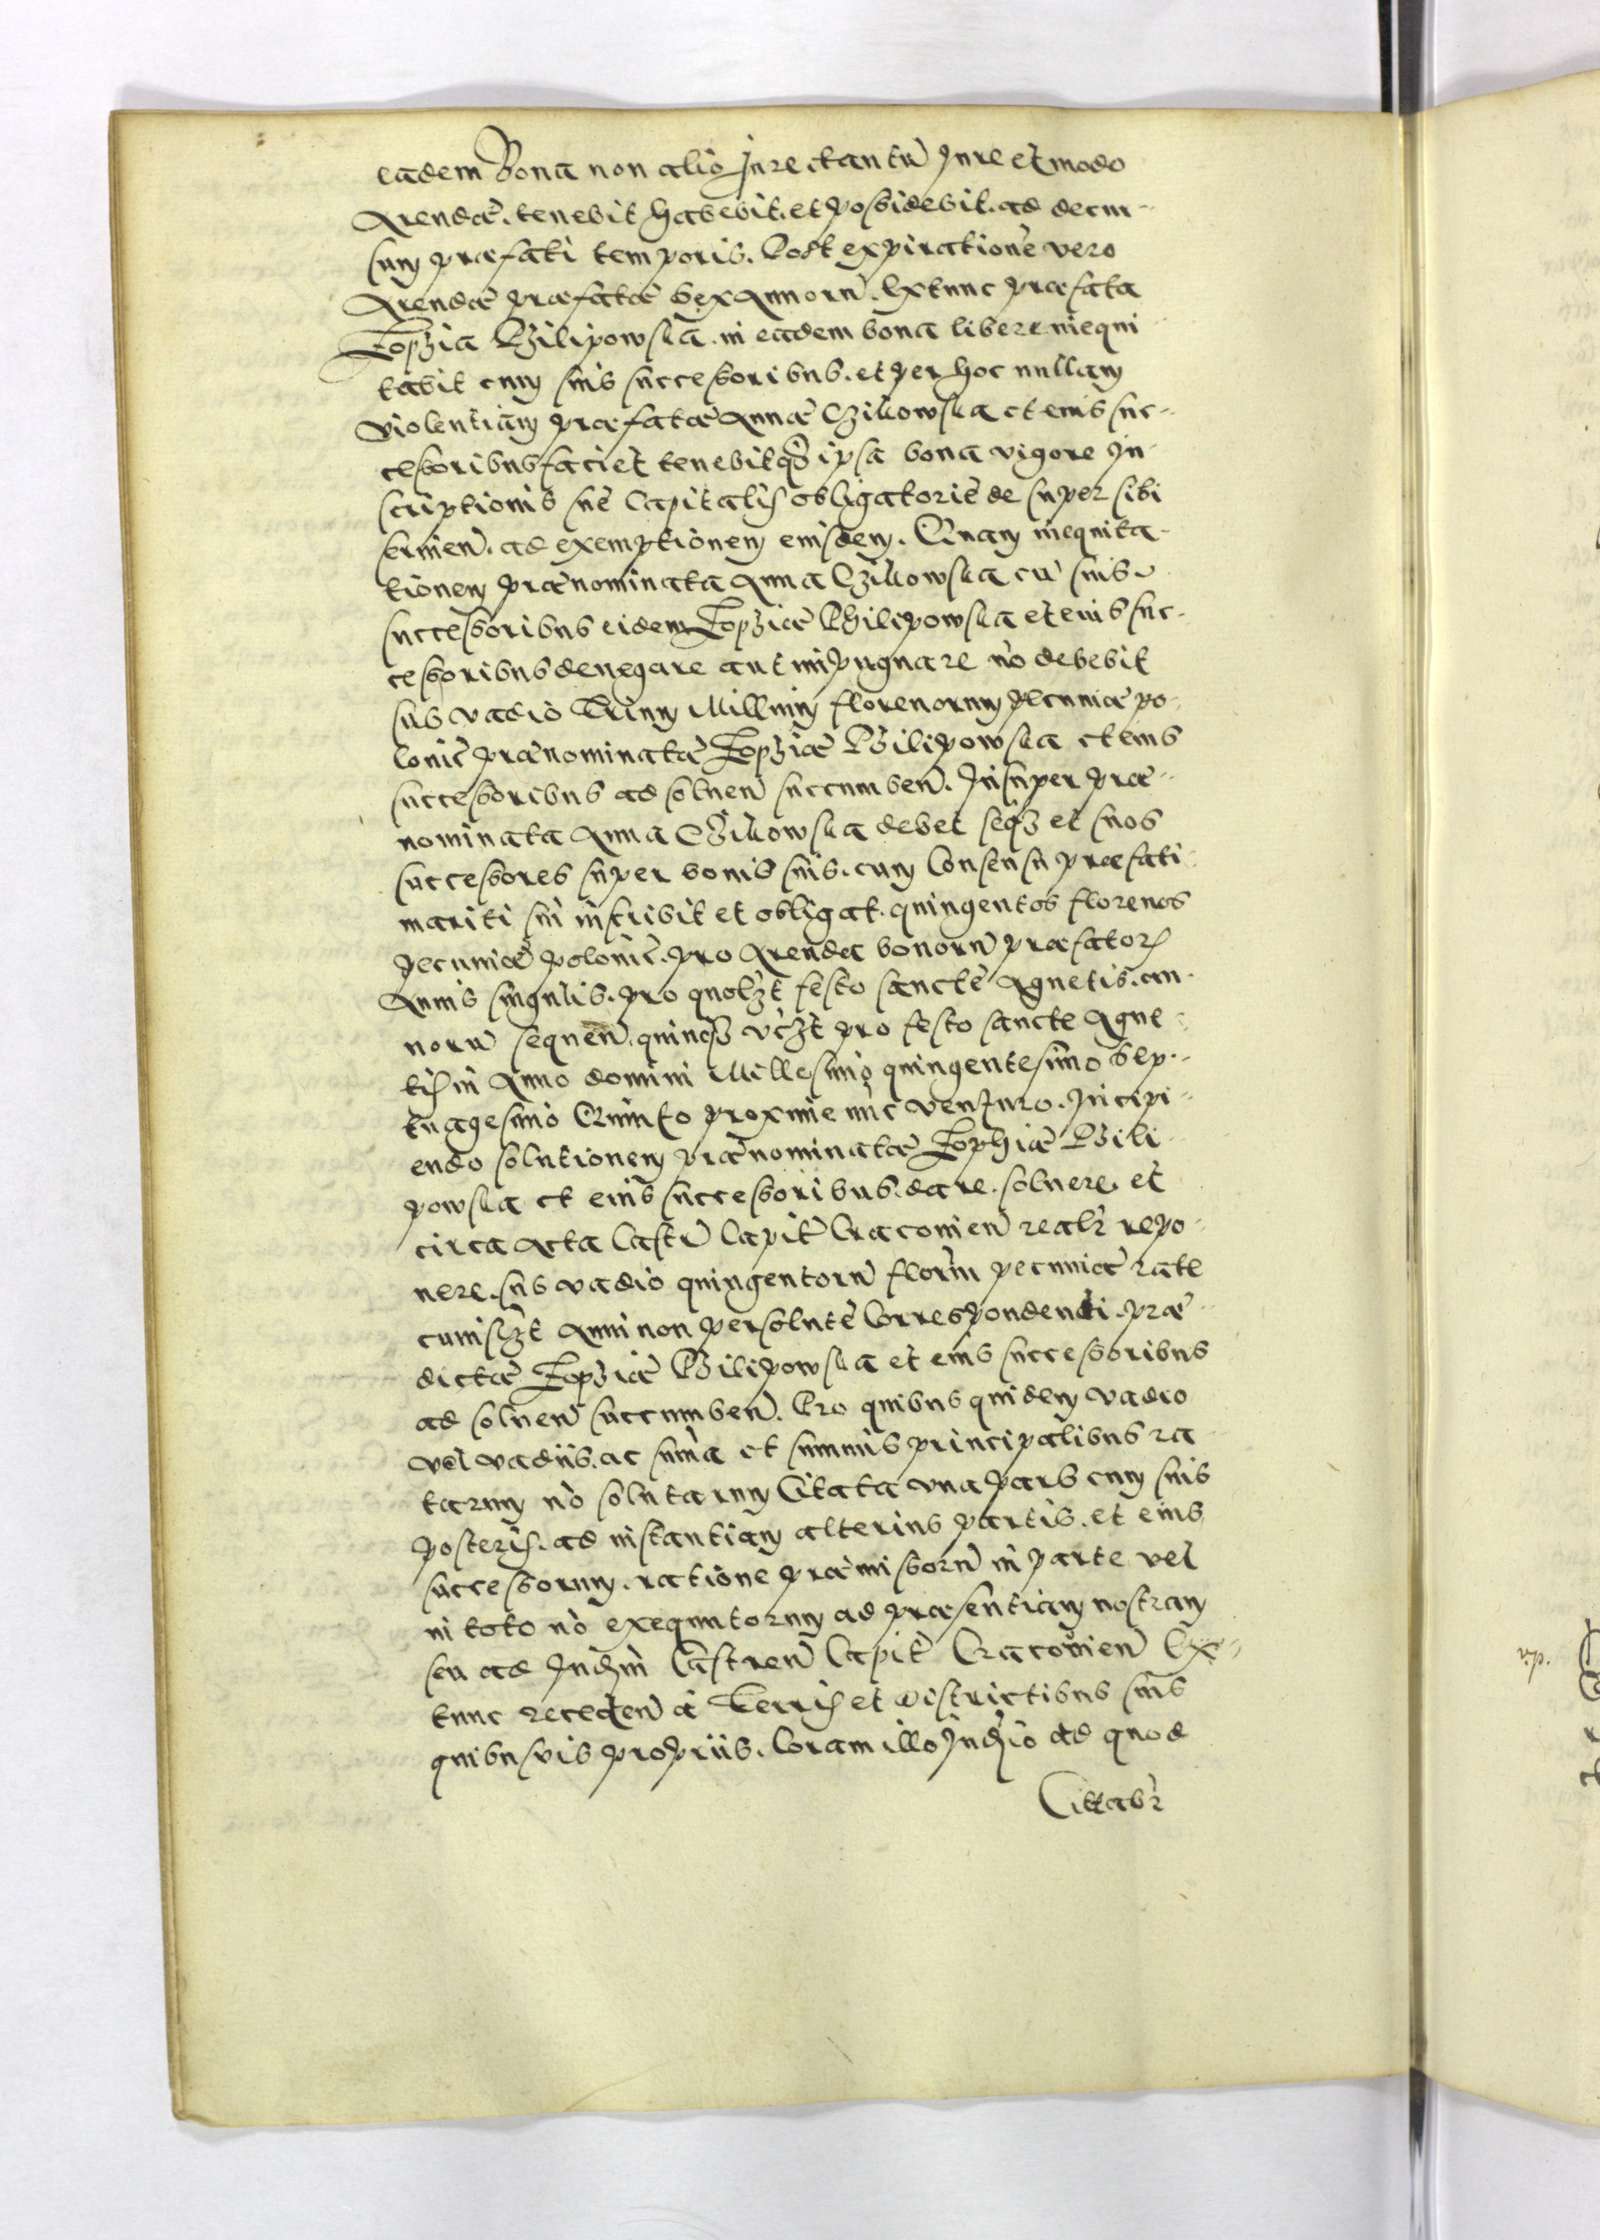 eadem Bona non alio Jure ctantũ Jure et modo
Arendæ. tenebit habebit. et possidebit. ad decur-
sum præfati temporis. Post expirationē vero
Arendæ præfatæ sex Annorũ. Extunc præfata
Zophia Philipowska. in eadem bona libere inequi
tabit cum suis successoribus. et per hoc nullam
violentiam præfatæ Annæ Czikowska et eius suc-
cessoribus faciet tenebitqȝ ipsa bona vigore In-
scriptionis suę Capitalis obligatorię de super sibi
servień. ad exemptionem eiusdem. Quam inequita-
tionem prænominata Anna Czikowska cũ suis
successoribus eidem Zophiæ Philipowska et eius suc-
cessoribus denegare aut impugnare nō debebit
sub vadio Trium Millium florenorum pecuniæ po-
lonic̃ prænominatæ Zophiæ Philipowska et eius
successoribus ad solueń succumbeń. Insuper præ-
nominata Anna Czikowska debet seqȝ et suos
successores super bonis suis. cum Consensu præfati
mariti sui inscribit et obligat. quingentos florenos
pecuniæ polonic̃. pro Arenda bonorũ præfatorꝭ
Annis singulis. pro quolȝt festo sanctę Agnetis. an-
norũ sequeń. quinqȝ vcȝt pro festo sancte Agne-
tis in Anno domini Millesimo quingentesimo sep-
tuagesimo Quinto proxime nũc venturo. Incipi-
endo solutionem prænominatæ Zophiæ Phili
powska et eius successoribus. dare. soluere. et
circa Acta Castrẽ Capitẽ Cracovień realr̃ repo-
nere. sub vadio quingentorũ floreń pecuniæ ratę
cuiuslȝt Anni non persolutę Correspondenti. præ-
dictæ Zophiæ Philipowska et eius successoribus
ad solueń succumbeń. Pro quibus quidem vadio
vel vadiis. ac sum̃a et summis principalibus ra
tarum nō solutarum Citata una pars cum suis
posteris. ad instantiam alterius partis. et eius
successorum. ratione præmissorũ in parte vel
in toto nō exequutorum ad præsentiam nostram
seu ad Judiũ Castreń Capitẽ Cracovień Ex-
tunc recedeń a Terris et Districtibus suis
quibusvis propriis. Coram illo Judio ad quod
Cittabr̃